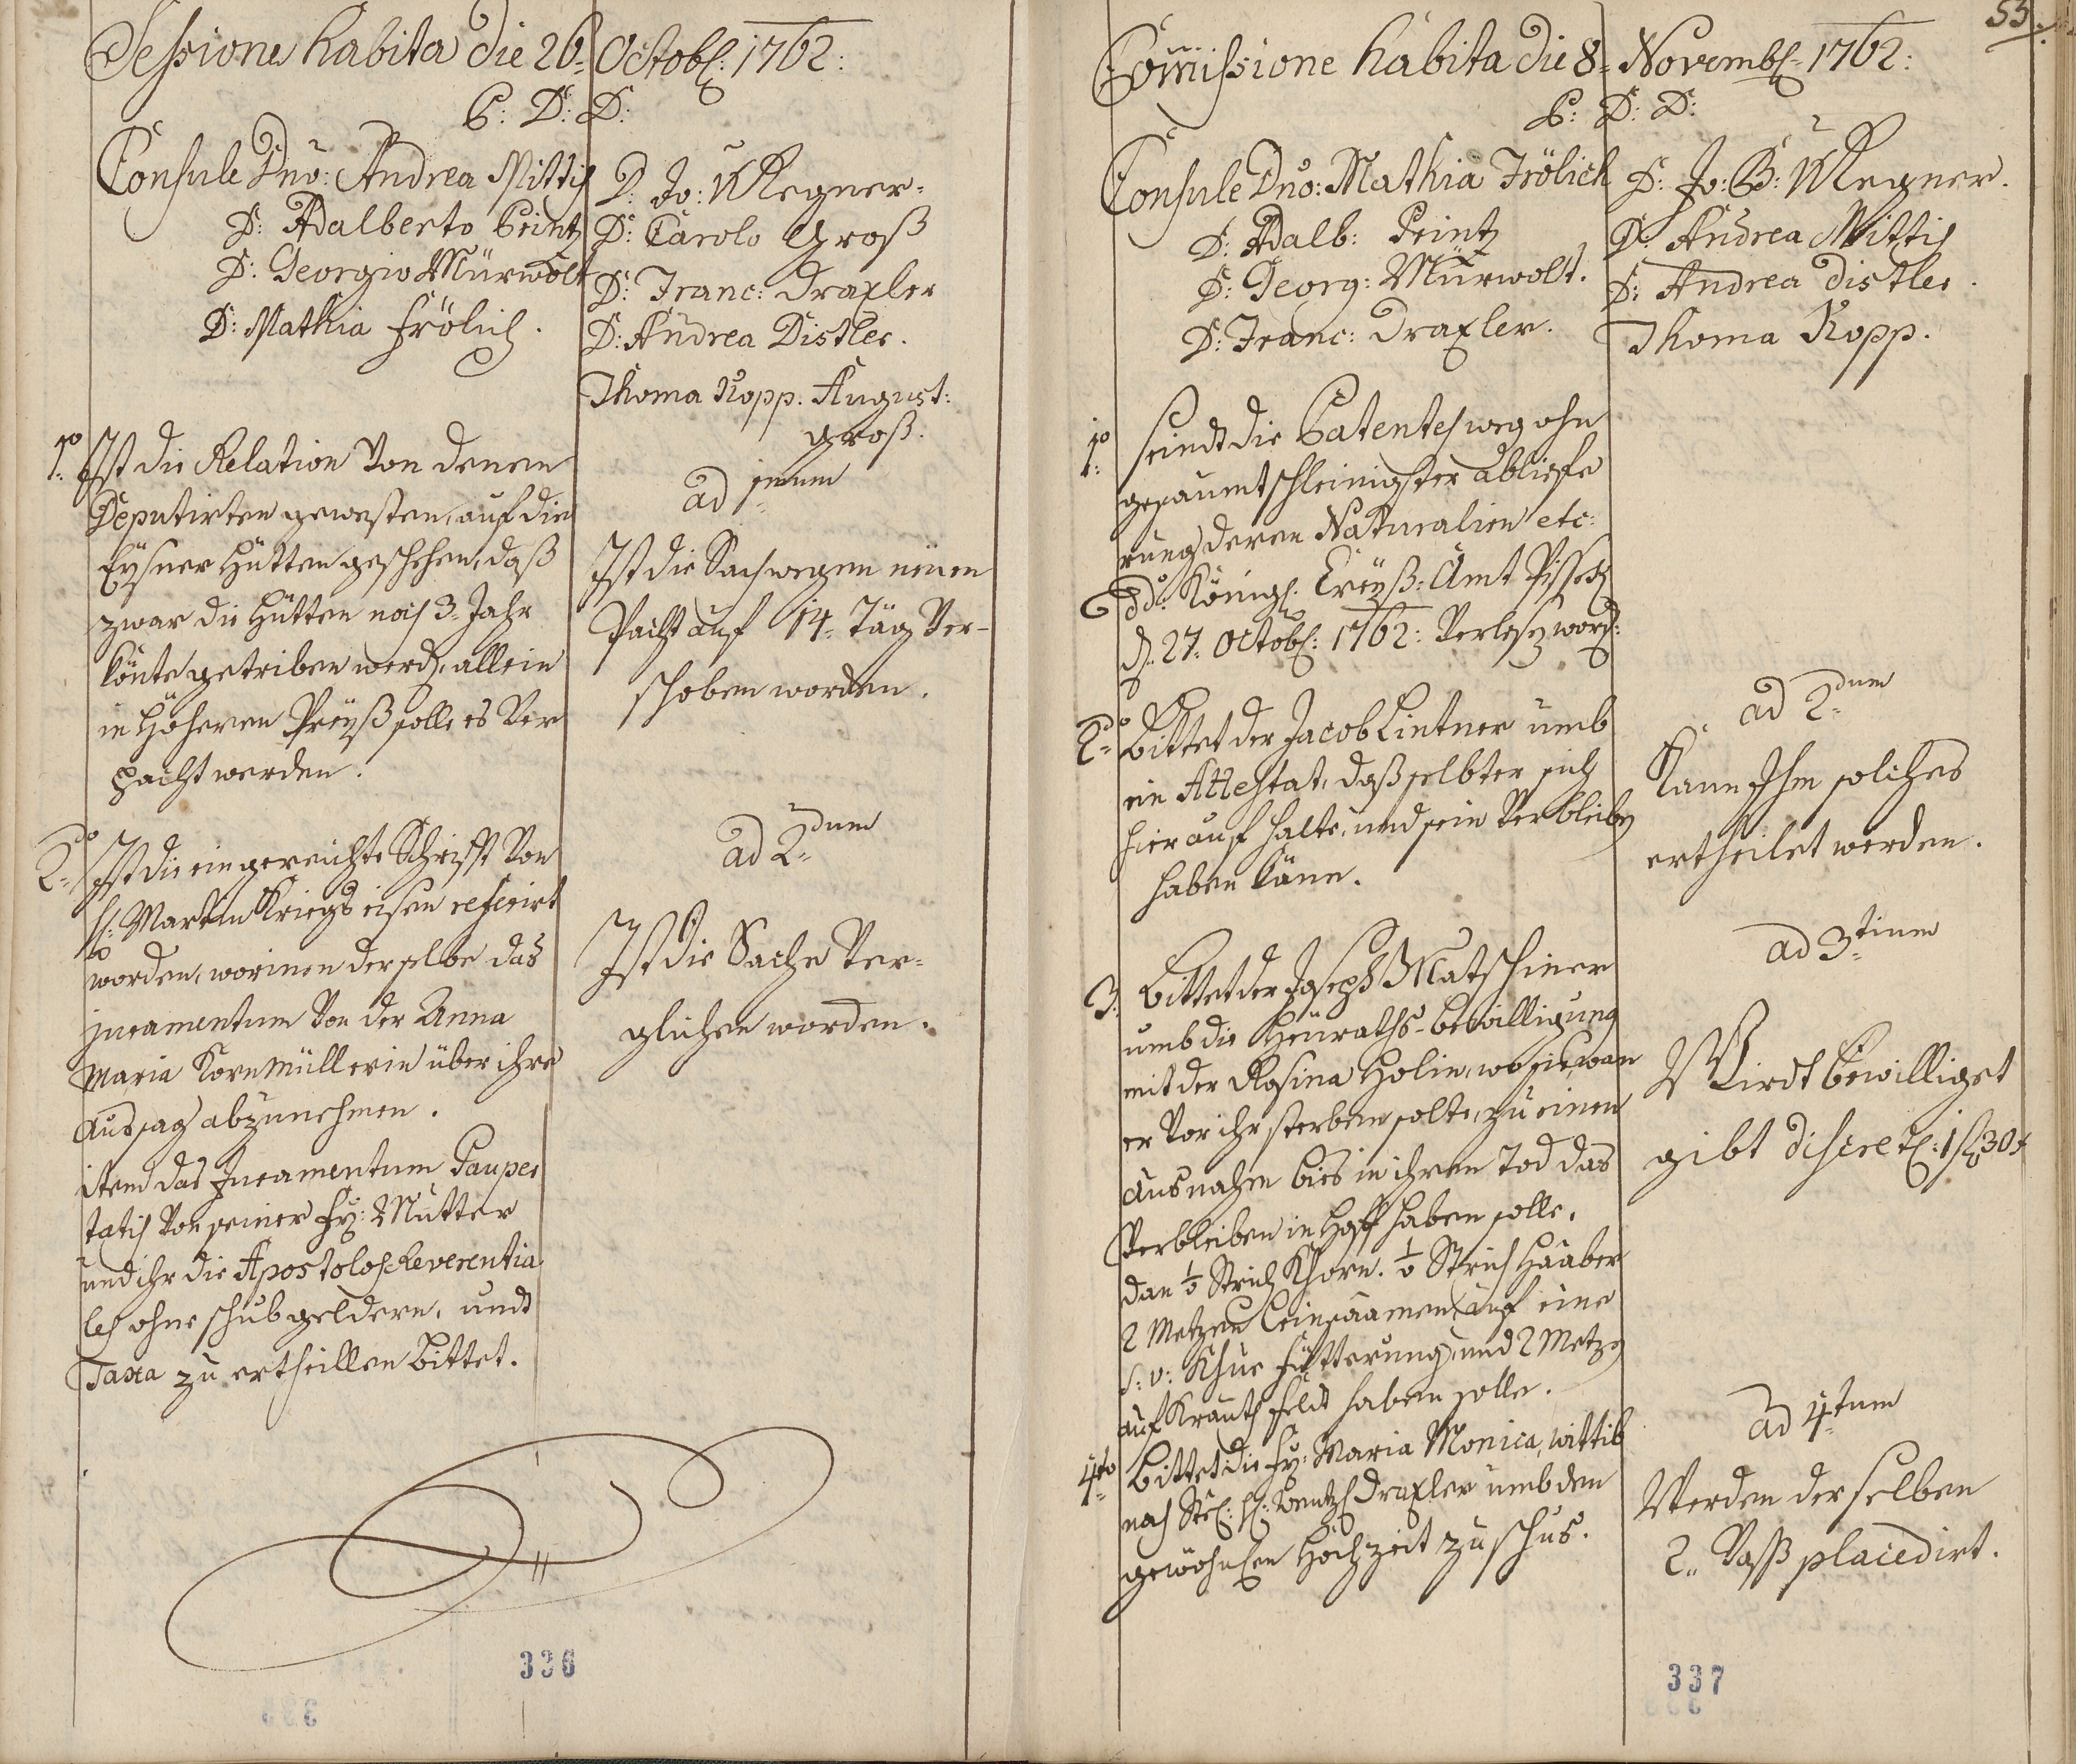 Sessione habita die 26: Octobr: 1762:
P: D: D:
Consule Dno: Andrea Mittis
D: Adalberto Printz
D: Georgio Mürwolt
D: Mathia Frölich.
D: Jo: Wegner.
D: Carolo Groß
D: Franc: Draxler
D: Andrea Distler.
Thoma Kopp. August:
Groß.
1mo Ist die Relation Von denen
Deputirten gewesten, auf die
Eysner Hütten geschehen, daß
zwar die Hütten noch 3. Jahr
könte getriben werd, allein
in höheren Preyß solle es Ver
pacht werden.
ad 1mum
Ist die Sach wegen neuen
Pacht auf 14. Täg Ver-
schoben worden.
2do Ist die eingereichte Schrifft Von
H: Martin Kriegseisen referirt
worden, worinnen derselbe das
juramentum Von der Anna
Maria Kornmüllerin über ihre
Aussag abzunehmen.
item das Juramentum Pauper
tatis Von seiner Fr: Mutter
und ihr die Apostolos Reverentia
les ohne schubgeldern, undt
Taxa zu ertheillen bittet.
ad 2dum
Ist die Sache Ver-
glichen worden.
336
53.
Com̄issione habita die 8: Novembr: 1762:
P: D: D:
Consule Dno: Mathia Frölich
D: Adalb: Printz
D: Georg: Mürwolt.
D: Franc: Draxler.
D: Jo: B: Wegner.
D: Andrea Mittis
D: Andrea Distler.
Thoma Kopp.
1mo seindt die Patentes weg ohn
gesaumt schleinigster abliefe
rung deren Naturalien etc:
dd: Königl: Creyß: Amt Pissek
d: 27: Octobr: 1762: Verlesen word:
2do Bittet der Jacob Lintner umb
ein Attestat, daß selbter sich
hier auf halte, und sein Verbleiben
haben käne.
ad 2dum
Kann Ihm solches
ertheilet werden.
3: Bittet der Joseph Matschiner
umb die Heuraths-bewilligung
mit der Rosina Holin, wo sie, wan
er Vor ihr sterben solte, zu einen
Ausnahm bies in ihren Tod das
Verbleiben in Hoff haben solle.
dan ½ Strich Khorn. ½ Strich Haaber
2 Metzen Leinsaamen, auf eine
s: v: Khue Fütterung, und 2 Metzen
auf Krauth feld haben solle.
ad 3tium
Wirdt bewilliget
gibt discret: 1 f 30 x
4to Bittet die Fr: Maria Monica, wittib
nach Stel: H: Wentzl Draxler umb den
gewöhnlen Hochzeit zuschus.
ad 4tum
Werden der selben
2„ Vaß placedirt.
337